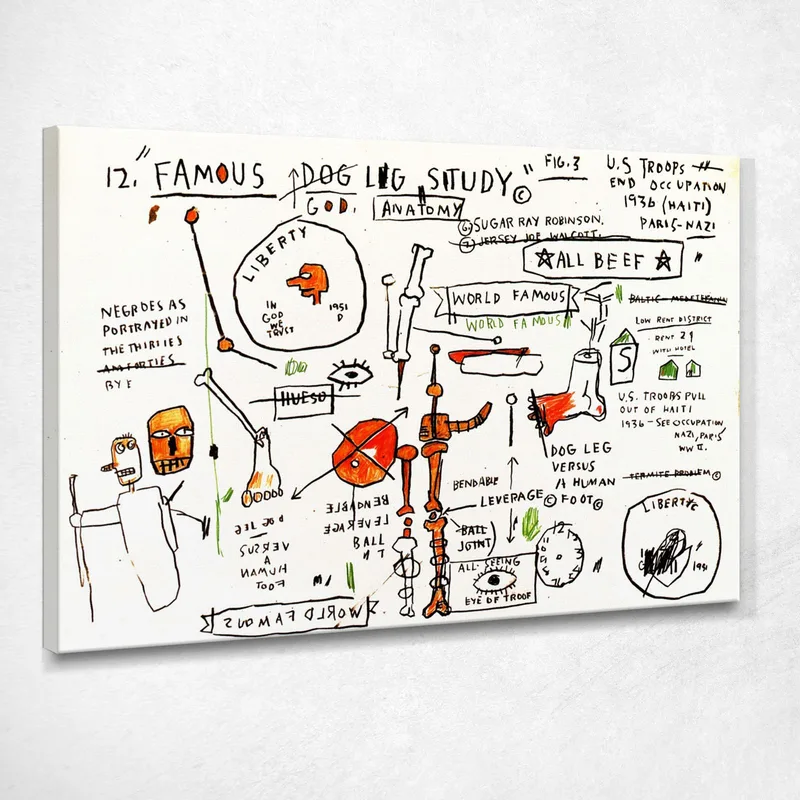 12." FAMOUS DOG LEG STUDY ©
GOD.
ANATOMY
FIG.3
U.S TROOPS
END OCCUPATION
1936 (HAITI)
PARIS-NAZI
6 SUGAR RAY ROBINSON.
7 JERSEY JOE WALCOTT.
☆ALL BEEF☆
LIBERTY
IN
GOD
WE
TRUST
1951
D
WORLD FAMOUS
WORLD FAMOUS
LOW RENT DISTRICT
RENT 2
WITH HOTEL
S
NEGROES AS
PORTRAYED IN
THE THIRTIES
AND FORTIES
BY
HUESO
U.S. TROOPS PULL
OUT OF HAITI
1936 - SEE OCCUPATION
NAZI, PARIS
WW II.
DOG LEG
VERSUS
A HUMAN
FOOT©
TERMITE PROBLEM ©
BENDABLE
LEVERAGE ©
BALL
JOINT
BENDABLE
LEVERAGE
BALL
DOG LEG
VERSUS
A
HUMAN
FOOT
ALL-SEEING
EYE OF TROOF
12
LIBERTY©
1951
WORLD FAMOUS